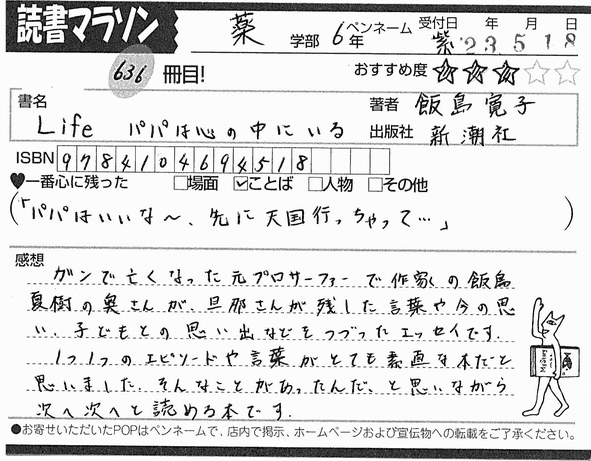 読書マラソン
薬 学部 6年 ペンネーム 紫 受付日 年 月 日 '23.5.18
636 冊目! おすすめ度 ★★★☆☆
書名 著者 飯島寛子
Life パパは心の中にいる 出版社 新潮社
ISBN 9784104694518
♥一番心に残った □場面 ☑ことば □人物 □その他
(「パパはいいな〜、先に天国行っちゃって…」)
感想
ガンで亡くなった元プロサーファーで作家の飯島
夏樹の奥さんが、旦那さんが残した言葉や今の思
い、子どもとの思い出などをつづったエッセイです。
1つ1つのエピソードや言葉がとても素直な本だと
思いました。そんなことがあったんだ、と思いながら
次へ次へと読める本です。
●お寄せいただいたPOPはペンネームで、店内で掲示、ホームページおよび宣伝物への転載をご了承ください。